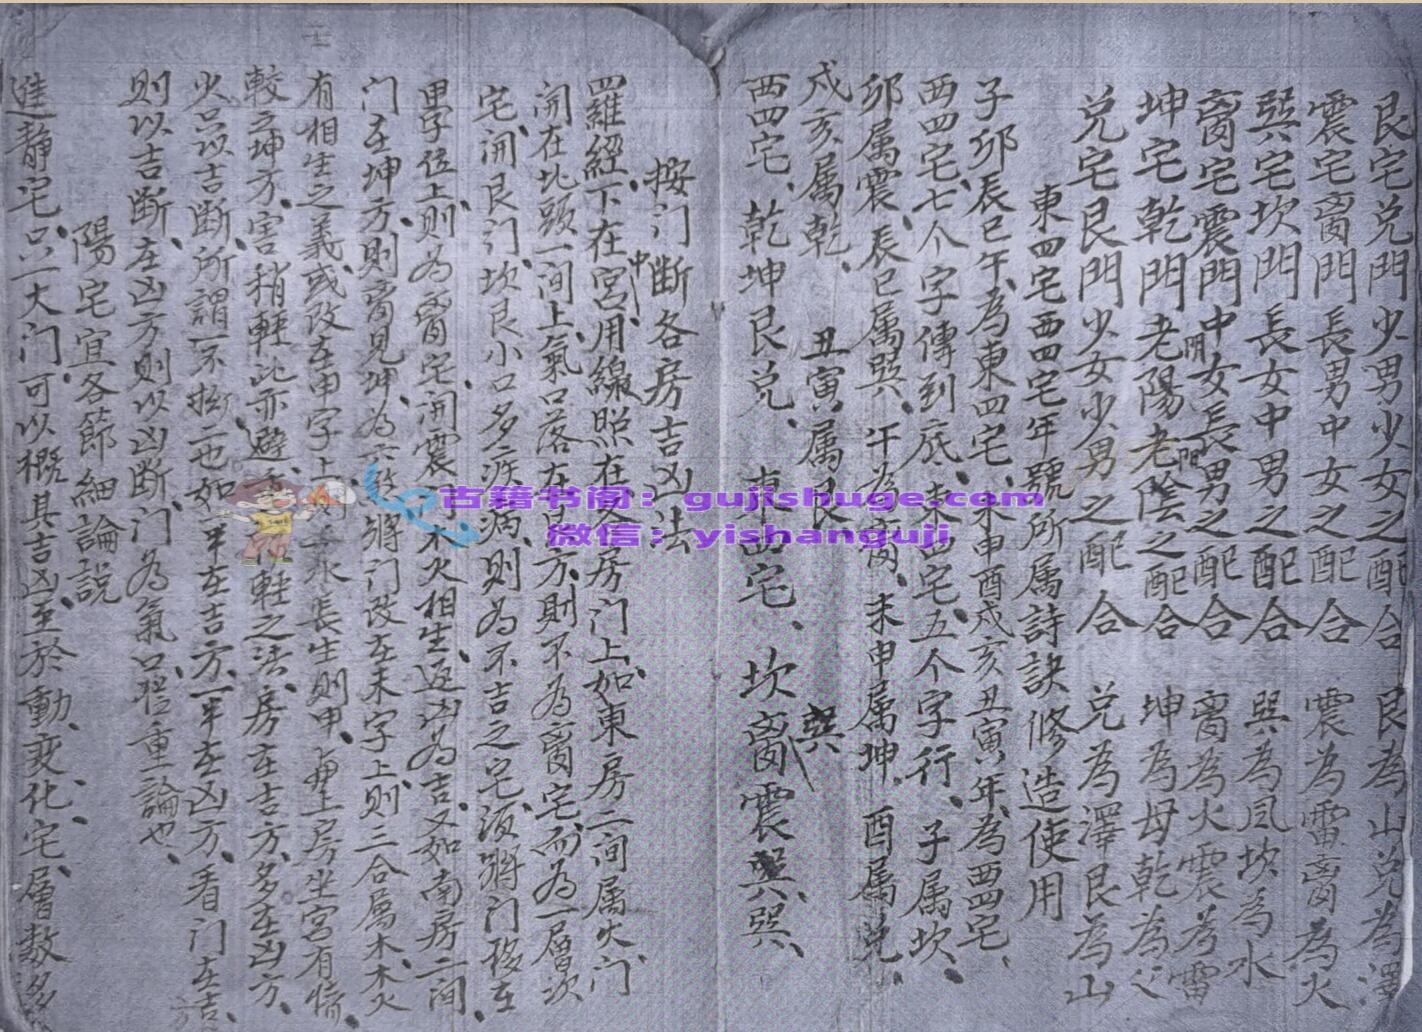 艮宅兑門少男少女之配合 艮為山兑為澤
震宅离門長男中女之配合 震為雷离為火
巽宅坎門長女中男之配合 巽為風坎為水
离宅震門中女長男之配合 离為火震為雷
坤宅乾門老陽老陰之配合 坤為母乾為父
兑宅艮門少女少男之配合 兑為澤艮為山
東四宅西四宅年號所属詩訣修造使用
子卯辰巳午為東四宅、未申酉戌亥丑寅年為西四宅、
西四宅七个字傳到底、東四宅五个字行、子属坎、
卯属震、辰巳属巽、午為离、未申属坤、酉属兑、
戍亥属乾、 丑寅属艮
西四宅、乾坤艮兑、 東四宅、坎离震巽
巽
按门断各房吉凶法
罗羅經下在宮中用線照在各房门上、如東房二间属火、门
開在北頭一间上、氣口落在艮方、則不為离宅、而為一層次
宅、開艮门、坎艮小口多疾病、則為不吉之宅、後將门移在
甲字位上、則為离宅、開震门、木火相生、返凶為吉、又如南房二间、
门在坤方、則离見坤、為六煞、將门改在未字上、則三合属木、木火
有相生之義、或改在申字上、則 水長生、則申、
較之坤方、害稍輕、此亦避重 輕之法、房在吉方、多在凶方、
火、只以吉断、所謂一不拗二也、如一半在吉方、一半在凶方、看门在吉、
則以吉断、在凶方、則以凶断、门為氣口、從重論也、
陽宅宜各節細論說
進静宅、只一大门、可以概其吉凶、至於動、变、化、宅、層数多
古籍书阁：gujishuge.com
微信：yishanguji